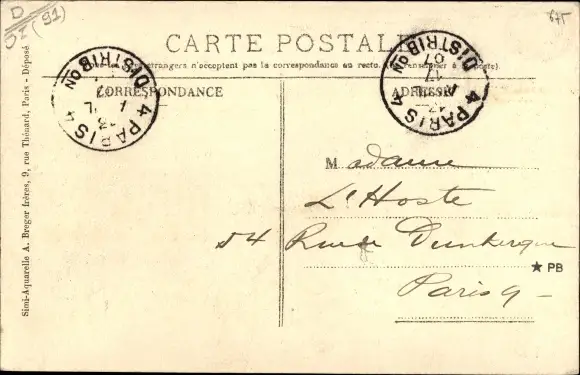 D
SZ (91)
675
CARTE POSTALE
étrangers n'acceptent pas la correspondance au recto. (Se renseigner à la Poste).
CORRESPONDANCE
ADRESSE
PARIS 4
DISTRIBON
PARIS 4
DISTRIBON
Madame
L'Hoste
54 Rue de Dunkerque
Paris 9
★ PB
Simi-Aquarelle A. Breger frères, 9, rue Thénard, Paris - Déposé